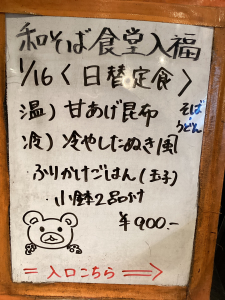 和そば食堂入福
1/16〈日替定食〉
温）甘あげ昆布
冷）冷やしたぬき風
そば・うどん
ふりかけごはん（玉子）
小鉢2品付
¥900.-
＝入口こちら＝＞